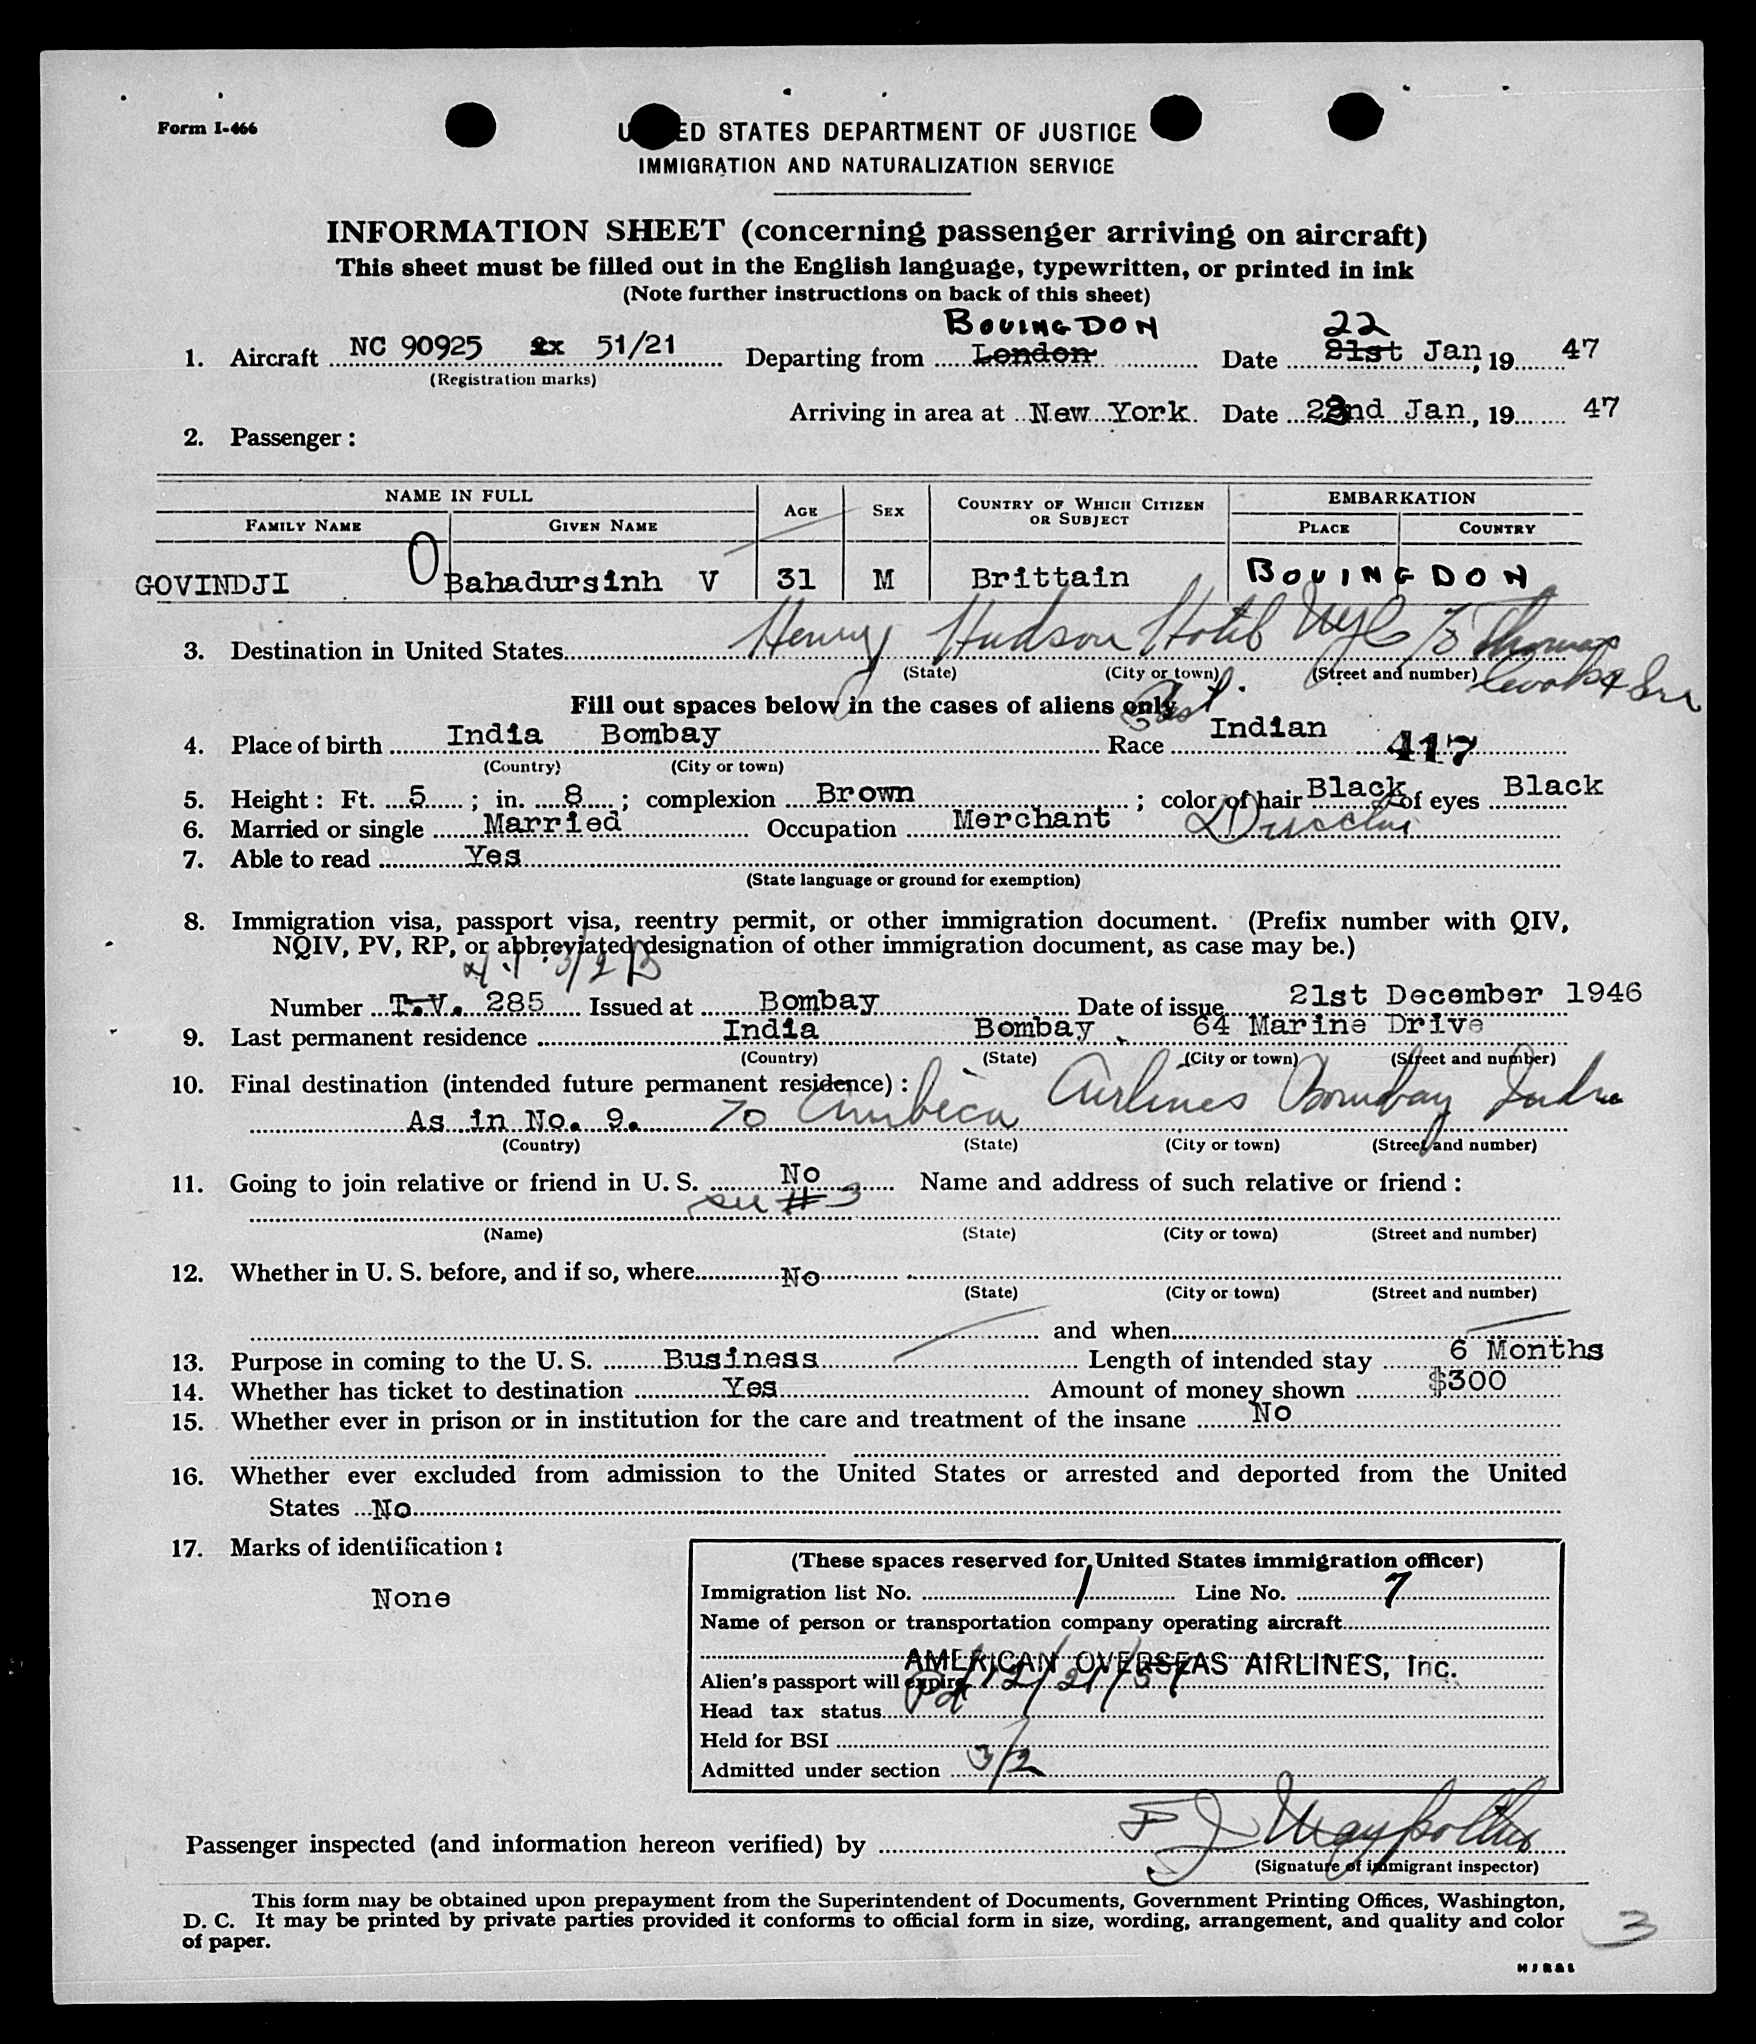 Form I-466
UNITED STATES DEPARTMENT OF JUSTICE
IMMIGRATION AND NATURALIZATION SERVICE
INFORMATION SHEET (concerning passenger arriving on aircraft)
This sheet must be filled out in the English language, typewritten, or printed in ink
(Note further instructions on back of this sheet)
BOVINGDON 22
1. Aircraft NC 90925 51/21 Departing from London Date 21st Jan, 19 47
(Registration marks)
Arriving in area at New York Date 23nd Jan, 19 47
2. Passenger:
NAME IN FULL AGE SEX COUNTRY OF WHICH CITIZEN OR SUBJECT EMBARKATION
FAMILY NAME GIVEN NAME PLACE COUNTRY
GOVINDJI O Bahadursinh V 31 M Brittain BOVINGDON
3. Destination in United States Henry Hudson Hotel NYC % Thomas
(State) (City or town) (Street and number)
Fill out spaces below in the cases of aliens only
4. Place of birth India Bombay Race East Indian 417
(Country) (City or town)
5. Height: Ft. 5; in. 8; complexion Brown; color of hair Black of eyes Black
6. Married or single Married Occupation Merchant Director
7. Able to read Yes
(State language or ground for exemption)
8. Immigration visa, passport visa, reentry permit, or other immigration document. (Prefix number with QIV,
NQIV, PV, RP, or abbreviated designation of other immigration document, as case may be.)
3/2 B
Number T.V. 285 Issued at Bombay Date of issue 21st December 1946
9. Last permanent residence India Bombay, 64 Marine Drive
(Country) (State) (City or town) (Street and number)
10. Final destination (intended future permanent residence):
As in No. 9. % Ambica Airlines Bombay India
(Country) (State) (City or town) (Street and number)
11. Going to join relative or friend in U. S. No Name and address of such relative or friend:
see # 3
(Name) (State) (City or town) (Street and number)
12. Whether in U. S. before, and if so, where No
(State) (City or town) (Street and number)
and when
13. Purpose in coming to the U. S. Business Length of intended stay 6 Months
14. Whether has ticket to destination Yes Amount of money shown $300
15. Whether ever in prison or in institution for the care and treatment of the insane No
16. Whether ever excluded from admission to the United States or arrested and deported from the United
States No
17. Marks of identification:
None
(These spaces reserved for United States immigration officer)
Immigration list No. 1 Line No. 7
Name of person or transportation company operating aircraft
AMERICAN OVERSEAS AIRLINES, Inc.
Alien's passport will expire 12/21/51
Head tax status Pd
Held for BSI
Admitted under section 3/2
Passenger inspected (and information hereon verified) by
(Signature of immigrant inspector)
This form may be obtained upon prepayment from the Superintendent of Documents, Government Printing Offices, Washington,
D. C. It may be printed by private parties provided it conforms to official form in size, wording, arrangement, and quality and color
of paper.
3